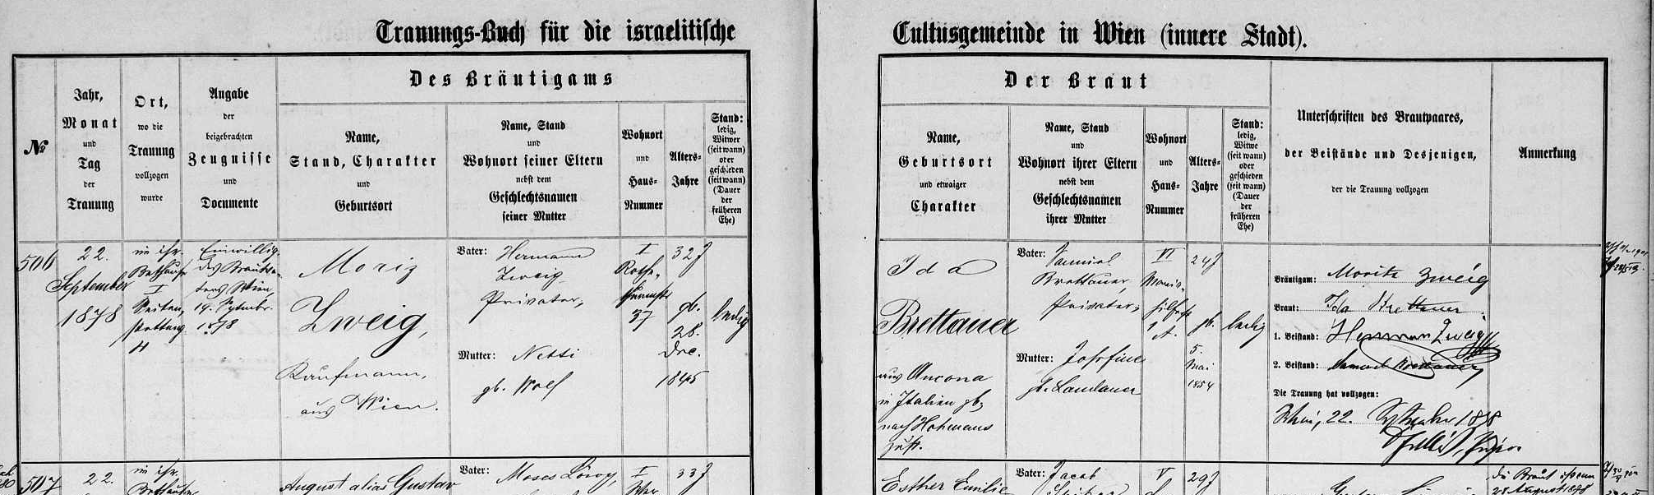 Trauungs-Buch für die israelitische
Cultusgemeinde in Wien (innere Stadt).
№
Jahr,
Monat
und
Tag
der
Trauung
Ort,
wo die
Trauung
vollzogen
wurde
Angabe
der
beigebrachten
Zeugnisse
und
Documente
Des Bräutigams
Name,
Stand, Charakter
und
Geburtsort
Name, Stand
und
Wohnort seiner Eltern
nebst dem
Geschlechtsnamen
seiner Mutter
Wohnort
und
Haus-
Nummer
Alters-
Jahre
Stand:
ledig,
Witwer
(seit wann)
oder
geschieden
(seit wann)
(Dauer
der
früheren
Ehe)
Der Braut
Name,
Geburtsort
und etwaiger
Charakter
Name, Stand
und
Wohnort ihrer Eltern
nebst dem
Geschlechtsnamen
ihrer Mutter
Wohnort
und
Haus-
Nummer
Alters-
Jahre
Stand:
ledig,
Witwe
(seit wann)
oder
geschieden
(seit wann)
(Dauer
der
früheren
Ehe)
Unterschriften des Brautpaares,
der Beistände und Desjenigen,
der die Trauung vollzogen
Anmerkung
506
22.
September
1878
im isr.
Bethause
I
Seiten-
stetteng
Einwillig.
des Brautva-
ters Wien,
19. Septembr.
1878
Moriz
Zweig,
Kaufmann,
aus Wien.
Vater: Hermann
Zweig
Privatier,
Mutter: Netti
gb. Wolf
I
37
32 J
gb.
28.
Dec.
1845
ledig
Ida
Brettauer
aus Ancona
in Italien gb,
nach Hohenems
zust.
Vater: Samuel
Brettauer,
Privatier,
Mutter: Josefine
gb. Landauer
VI
24 J
gb.
5.
Mai
1854
ledig
Bräutigam: Moritz Zweig
Braut: Ida Brettauer
1. Beistand: Herman Zweig
2. Beistand: Samuel Brettauer
Die Trauung hat vollzogen:
Wien, 22. September 1878
507
22.
im isr.
Bethause
August alias Gustav
Vater: Moses
I
33 J
Esther Emilie
Vater: Jacob
V
29 J
die Braut ist
28 August 1878